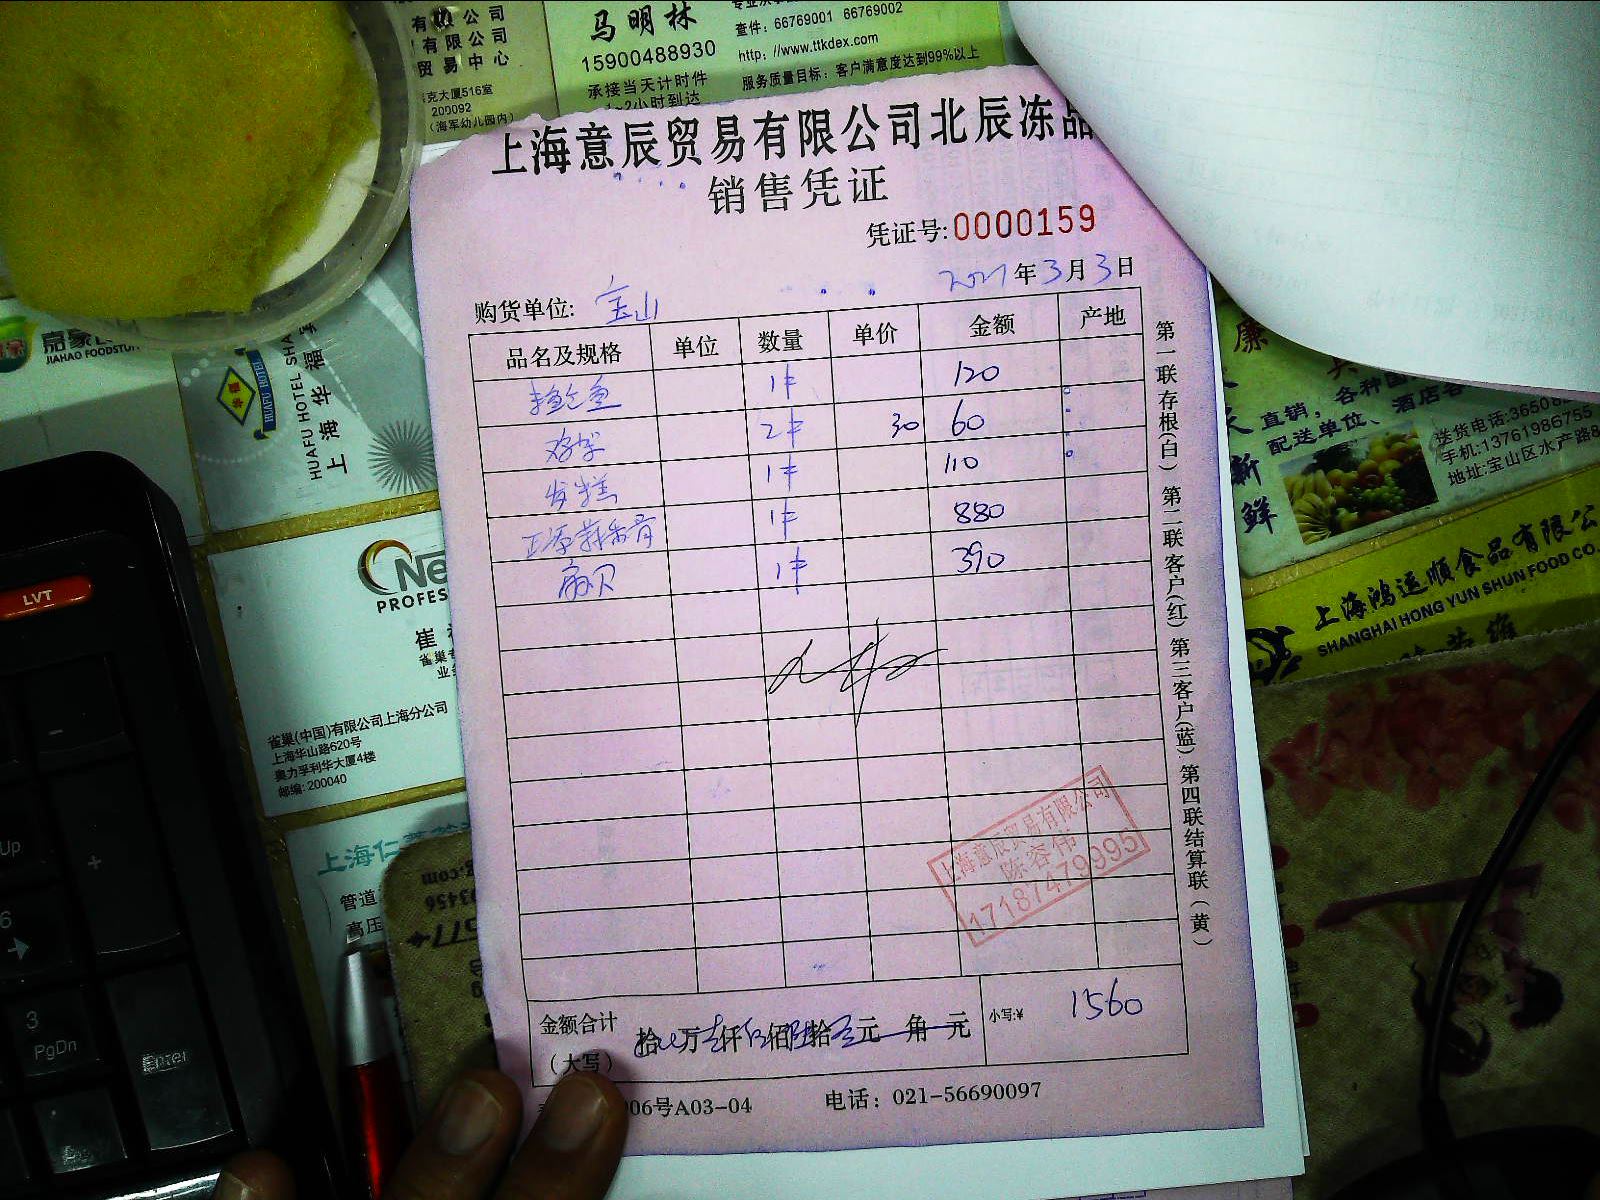 有限公司
有限公司
贸易中心
克大厦516室
200092
(海军幼儿园内)
马明林
15900488930
承接当天计时件
2小时到达
查件: 66769001 66769002
http: //www.ttkdex.com
服务质量目标: 客户满意度达到99%以上
上海意辰贸易有限公司北辰冻品
销售凭证
凭证号:0000159
2021年3月3日
购货单位: 宝山
品名及规格 单位 数量 单价 金额 产地
1件 120
2件 30 60
发糕 1件 110
1件 880
扇贝 1件 390
金额合计
(大写)
拾 万 仟 佰 拾 元 角 元
小写:¥ 1560
06号A03-04 电话: 021-56690097
第一联存根(白) 第二联客户(红) 第三客户(蓝) 第四联结算联(黄)
上海意辰贸易有限公司
陈容伟
17187479995
JIAHAO FOODSTUFF
HUAFU HOTEL
HUAFU HOTEL SHA
上海华福
Ne
PROFES
崔
雀巢(中国)有限公司上海分公司
上海华山路620号
奥力孚利华大厦4楼
邮编: 200040
上海仁
管道
高压
LVT
Up
+
6
3
PgDn
Enter
直销, 各种
配送单位、酒店
新
鲜
送货电话:3650
手机:13761986755
地址:宝山区水产路
上海鸿运顺食品有限公
SHANGHAI HONG YUN SHUN FOOD CO.